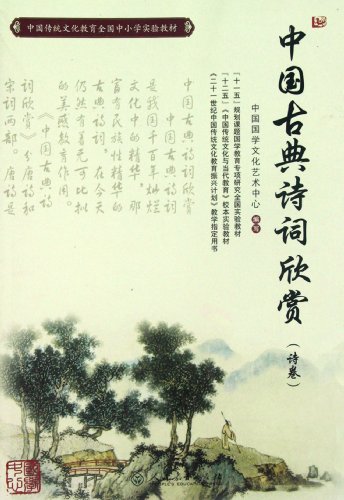 中国传统文化教育全国中小学实验教材
中国古典诗词欣赏
(诗卷)
中国国学文化艺术中心 编写
「十一五」规划课题国学教育专项研究全国实验教材
「十二五」《中国传统文化与当代教育》校本实验教材
《二十一世纪中国传统文化教育振兴计划》教学指定用书
中国古典诗词欣赏
中国古典诗词
是我国千百年灿烂
文化中的精华
富有民族性精华的
古典诗词。在今天
仍然有着无可比拟
的美感教育作用。
《中国古典诗
词欣赏》分唐诗和
宋词两部。唐诗是